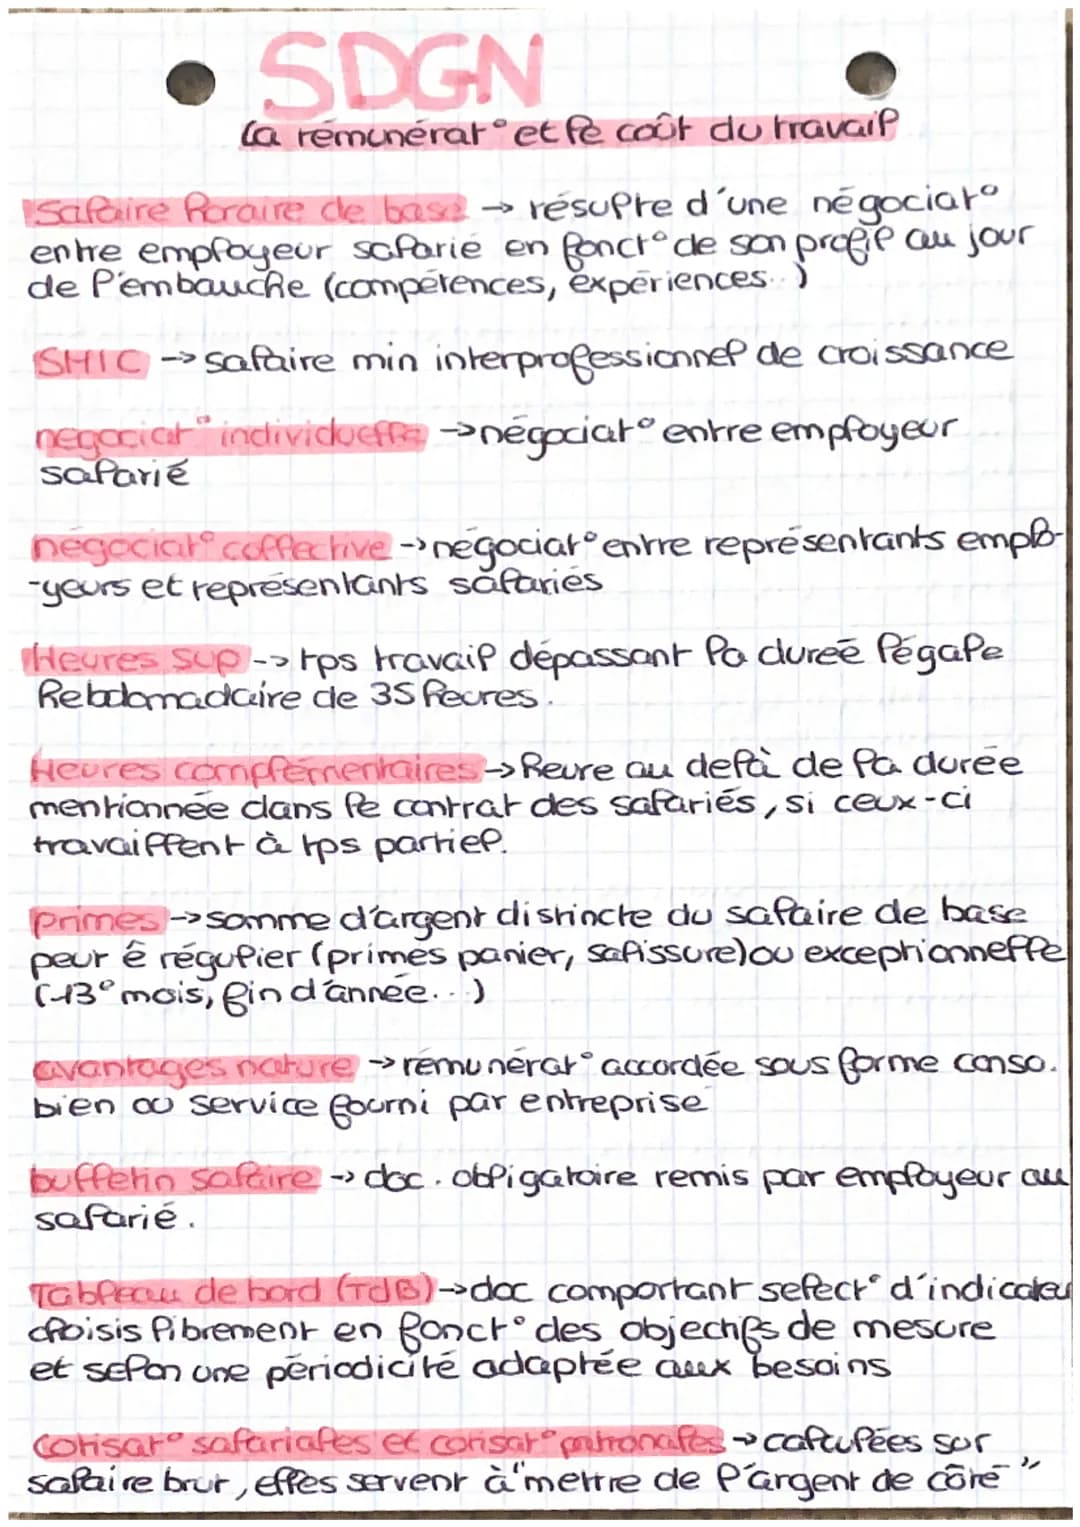 SDGN
la rémunérat° et le coût du travail
Salaire horaire de base → résulte d'une négociat°
entre employeur salarié en fonct° de son profil au jour
de l'embauche (compétences, expériences...)
SMIC → salaire min interprofessionnel de croissance
négociat° individuelle → négociat° entre employeur
salarié
négociat° collective → négociat° entre représentants emplo-
-yeurs et représentants salariés
Heures sup → tps travail dépassant la durée légale
hebdomadaire de 35 heures.
Heures complémentaires → heure au delà de la durée
mentionnée dans le contrat des salariés, si ceux-ci
travaillent à tps partiel.
primes → somme d'argent distincte du salaire de base
peut ê régulier (primes panier, salissure) ou exceptionnelle
(13° mois, fin d'année...)
avantages nature → rémunérat° accordée sous forme conso.
bien ou service fourni par entreprise
bulletin salaire → doc. obligatoire remis par employeur au
salarié.
Tableau de bord (TdB) → doc comportant select° d'indicateu
choisis librement en fonct° des objectifs de mesure
et selon une périodicité adaptée aux besoins
Cotisat° salariales et cotisat° patronales → calculées sur
salaire brut, elles servent à "mettre de l'argent de côté"